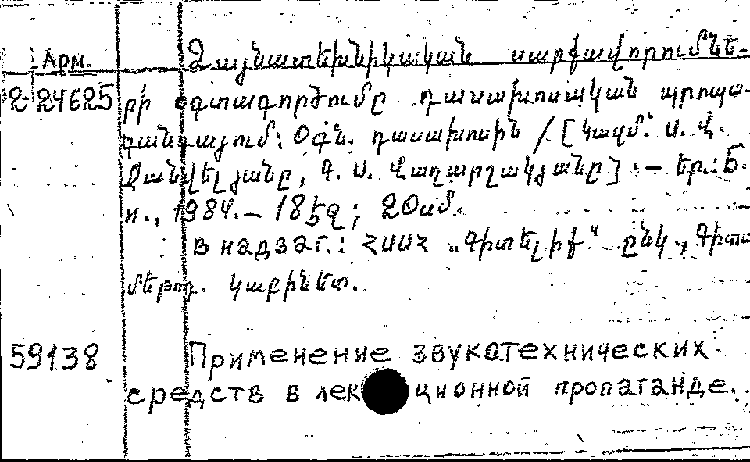 Арм. Ձայնատեխնիկական սարքավորումնե-
2-24625 րի օգտագործումը դասախոսական պրոպա-
գանդայում: Օգն. դասախոսին / [Կազմ.՝ Ս. Վ.
Ջանվելյանը, Գ. Ս. Վաղարշակյանը]. — Եր.: Б.
и., 1984. — 18 էջ; 20 սմ.
В надзаг.: ՀՍՍՀ „Գիտելիք“ ընկ., Գիտա
մեթոդ. կաբինետ.
59138 Применение звукотехнических
средств в лекционной пропаганде.